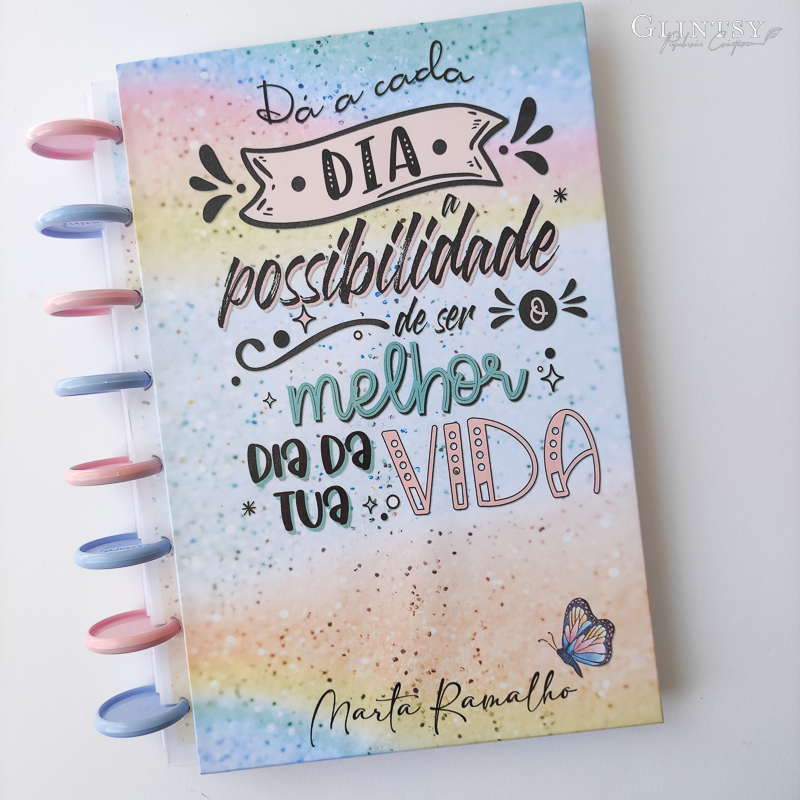 GLINTSY
Papelaria Criativa
Dá a cada
DIA
a
possibilidade
de ser o
melhor
DIA DA
TUA VIDA
Marta Ramalho